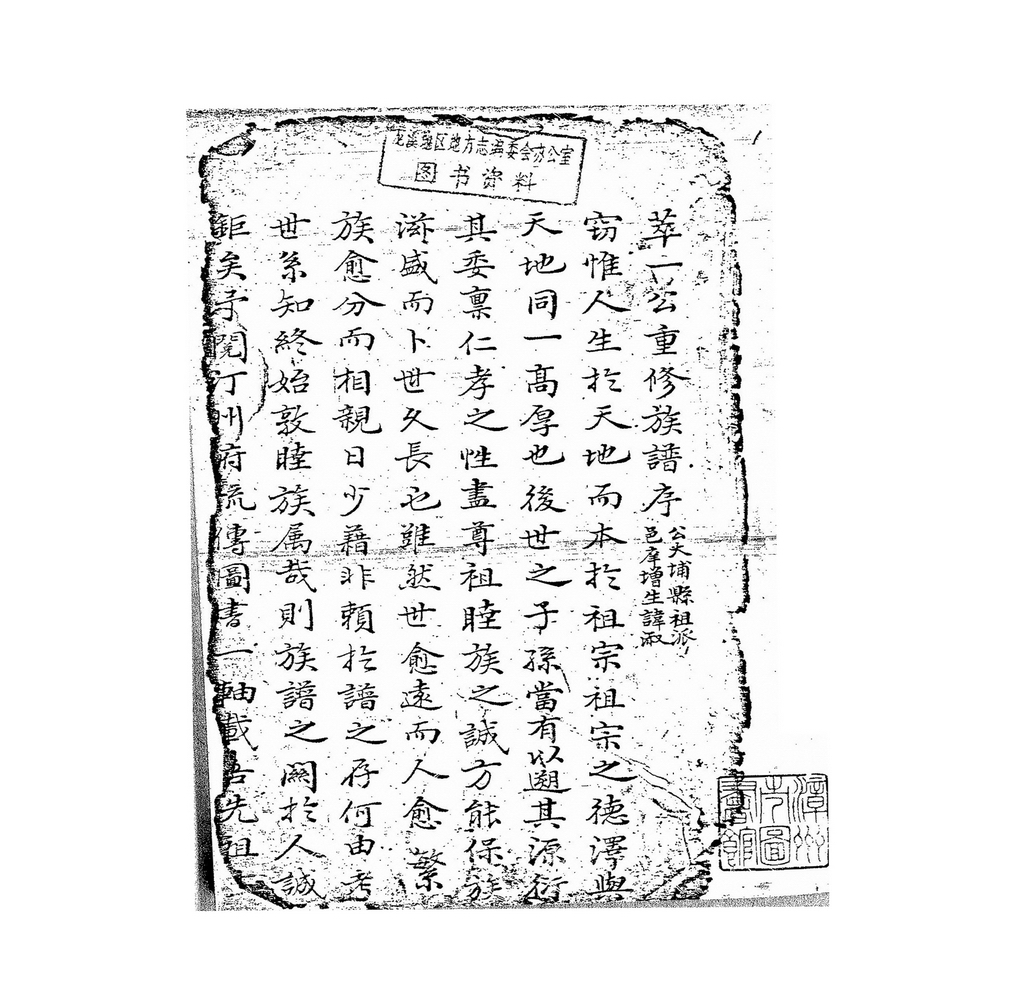 龙溪地区地方志编委会办公室
图书资料
萃一公重修族譜序
公大埔縣祖派
邑庠增生諱淑
窃惟人生於天地而本於祖宗祖宗之德澤與
天地同一高厚也後世之子孫當有以遡其源衍
其委禀仁孝之性盡尊祖睦族之誠方能保族
滋盛而卜世久長也雖然世愈遠而人愈繁
族愈分而相親日少藉非賴於譜之存何由考
世系知終始敦睦族属哉則族譜之関於人誠
鉅矣予閱汀州府流傳圖書一軸載吾先祖
漳州
市圖
書館